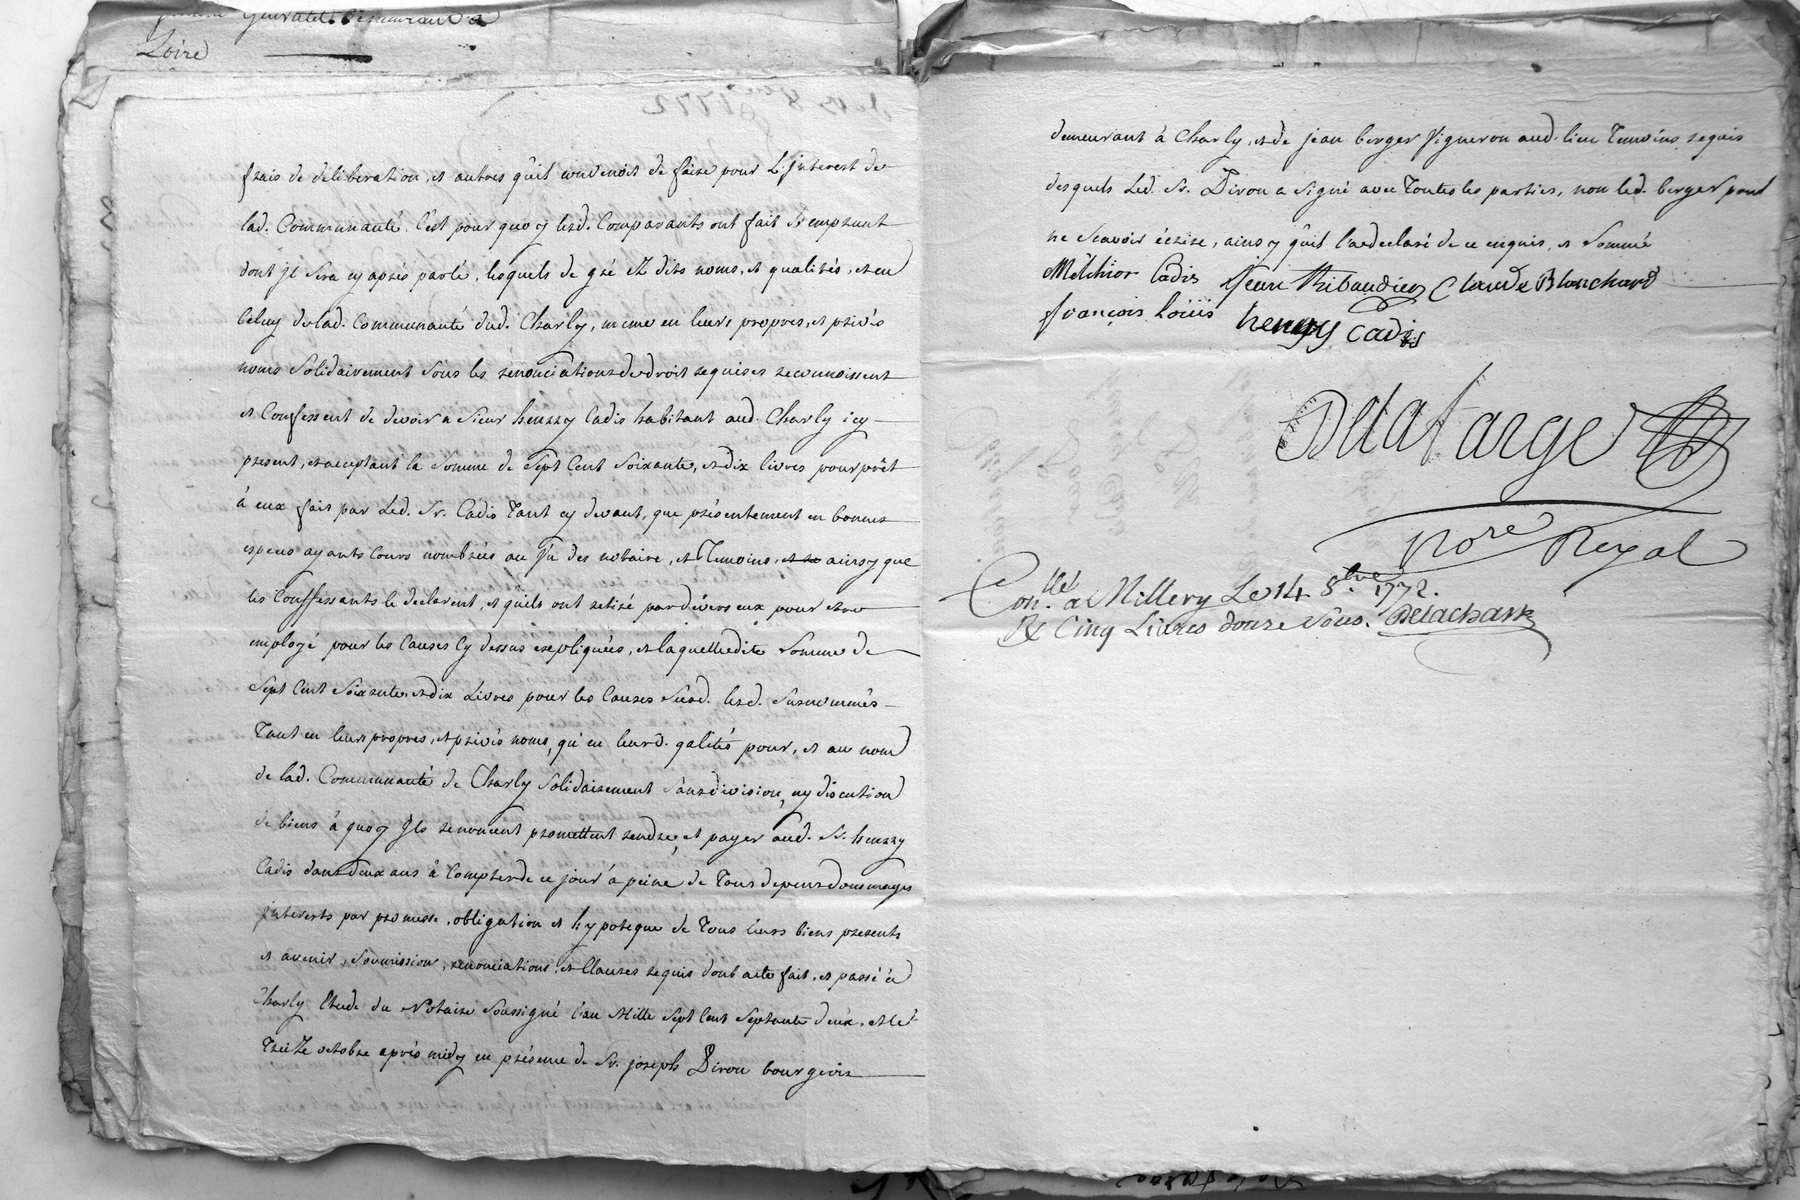 Loire
frais de deliberation, et autres qu'il convenoit de faire pour L'jnterest de
lad. Communauté, C'est pour quoy lesd. Comparants ont fait L'emprunt
dont jl sera cy aprés parlé, lesquels de gré Ez dits noms, et qualités, et en
Celuy de lad. Communauté dud. Charly, même en leurs propres, et privés
noms Solidairement Sous les renonciations de droit requises reconnoissent
et Confessent de devoir a Sieur henrry Cadis habitant aud. Charly icy
present, et acceptant la Somme de Sept Cent Soixante, et dix livres pour prêt
à eux fait par Led. Sr. Cadis Tant cy devant, que présentement en bonnes
especes ayants Cours nombrées au vu des notaire, et Temoins, ainsy que
les Conffessants le declarent, et qu'ils ont retiré pardévers eux pour etre
employé pour les Causes Cy dessus expliquées, et laquellredite Somme de
Sept Cent Soixante, et dix Livres pour les Causes Susd. lesd. Susnommés
Tant en leurs propres, et privés noms, qu'en leurd. qalités pour, et au nom
de lad. Communauté de Charly Solidairement Sans division, ny discution
de biens à quoy Jls renoncent promettent rendre, et payer aud. Sr. henrry
Cadis dans deux ans à Compter de ce jour à peine de Tous depens dommages
jnterests par promesse, obligation et hypoteque de Tous leurs biens presents
et avenir, Soumission, renonciations, et Clauses requis dont acte fait, et passé à
Charly Etude du Notaire Soussigné l'an Mille Sept Cent Septante deux, et le
Treize octobre aprés midy en présence de Sr. joseph Diron bourgeois
demeurant à Charly, et de jean berger Vigneron aud. lieu Temoins requis
desquels Led. Sr. Diron a Signé avec Toutes les parties, non led. berger pour
ne Scavoir écrire, ainsy qu'il l'a declaré de ce enquis, et Sommé
Mélchior Cadis jean Thibaudier Claude Blanchard
françois Loüis henrry cadis
Delafarge
Nore Royal
Conllé. a Millery Le 14 8bre. 1772.
R Cinq Livres douze Sous. Delacharse